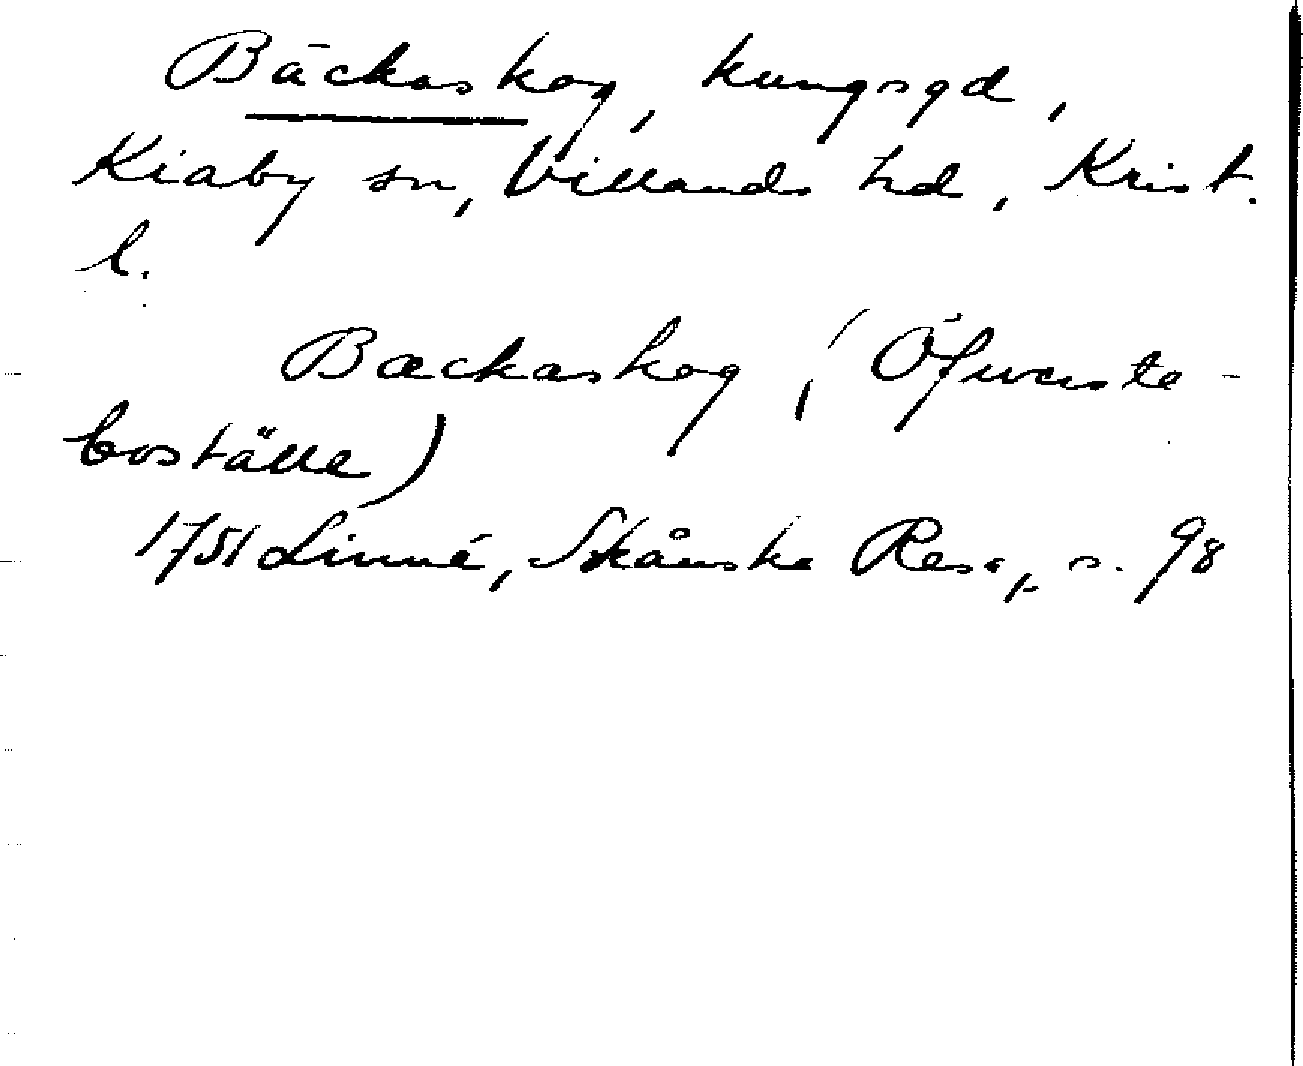 Bäckaskog, kungsgd,
Kiaby sn, Villands hd, Krist.
l.
Backaskog, (Öfverste-
boställe)
1751 Linné, Skånska Resa, s. 98